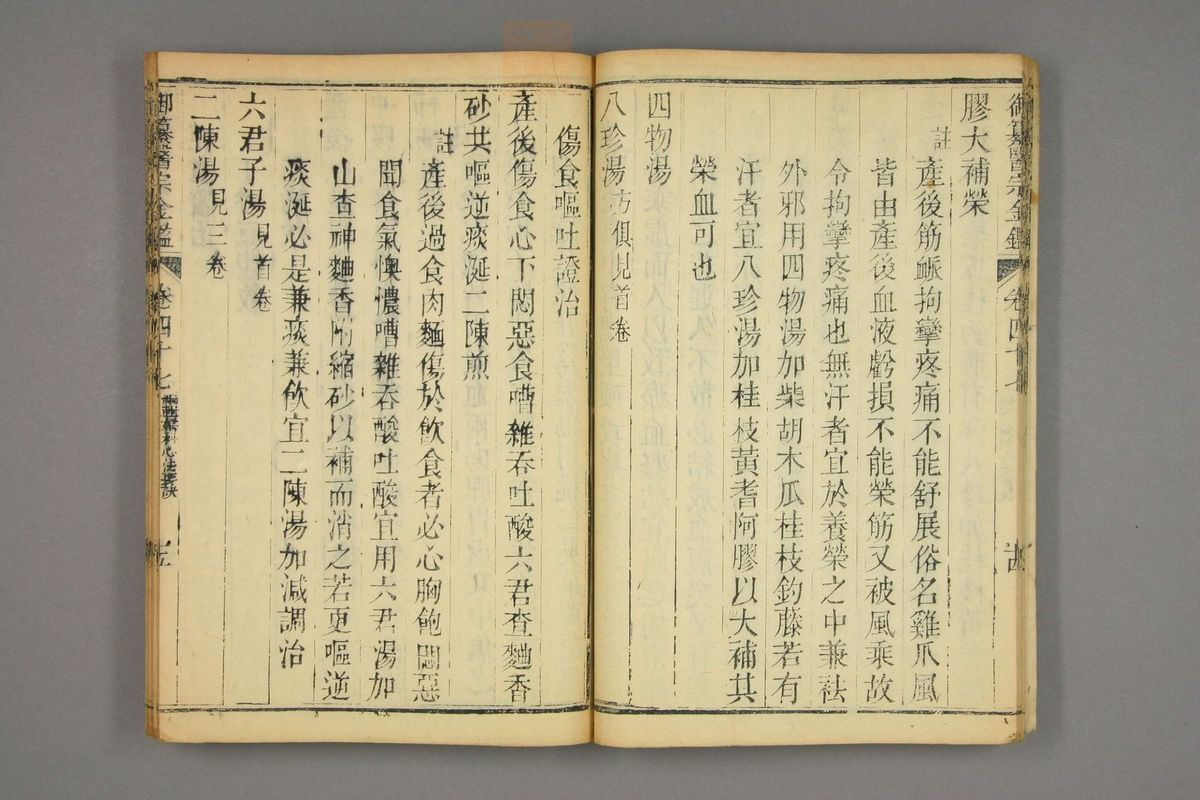 御纂醫宗金鑑 卷四十七
膠大補榮
註產後筋脈拘攣疼痛不能舒展俗名雞爪風
皆由產後血液虧損不能榮筋又被風乘故
令拘攣疼痛也無汗者宜於養榮之中兼祛
外邪用四物湯加柴胡木瓜桂枝鈎藤若有
汗者宜八珍湯加桂枝黃耆阿膠以大補其
榮血可也
四物湯
八珍湯方俱見首卷
傷食嘔吐證治
產後傷食心下悶惡食嘈雜吞吐酸六君查麯香
砂共嘔逆痰涎二陳煎
註產後過食肉麵傷於飲食者必心胸飽悶惡
聞食氣懊憹嘈雜吞酸吐酸宜用六君湯加
山查神麯香附縮砂以補而消之若更嘔逆
痰涎必是兼痰兼飲宜二陳湯加減調治
六君子湯見首卷
二陳湯見三卷
御纂醫宗金鑑 卷四十七 婦科心法要訣